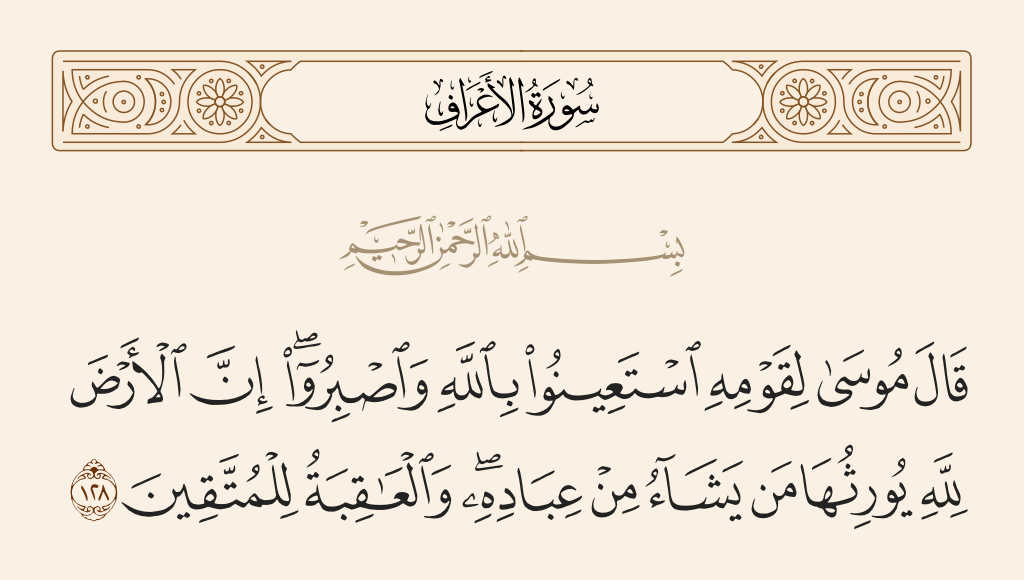 سُورَةُ الأَعْرَافِ
بِسْمِ ٱللَّهِ ٱلرَّحْمَٰنِ ٱلرَّحِيمِ
قَالَ مُوسَىٰ لِقَوْمِهِ ٱسْتَعِينُوا۟ بِٱللَّهِ وَٱصْبِرُوٓا۟ ۖ إِنَّ ٱلْأَرْضَ
لِلَّهِ يُورِثُهَا مَن يَشَآءُ مِنْ عِبَادِهِۦ ۖ وَٱلْعَـٰقِبَةُ لِلْمُتَّقِينَ ١٢٨